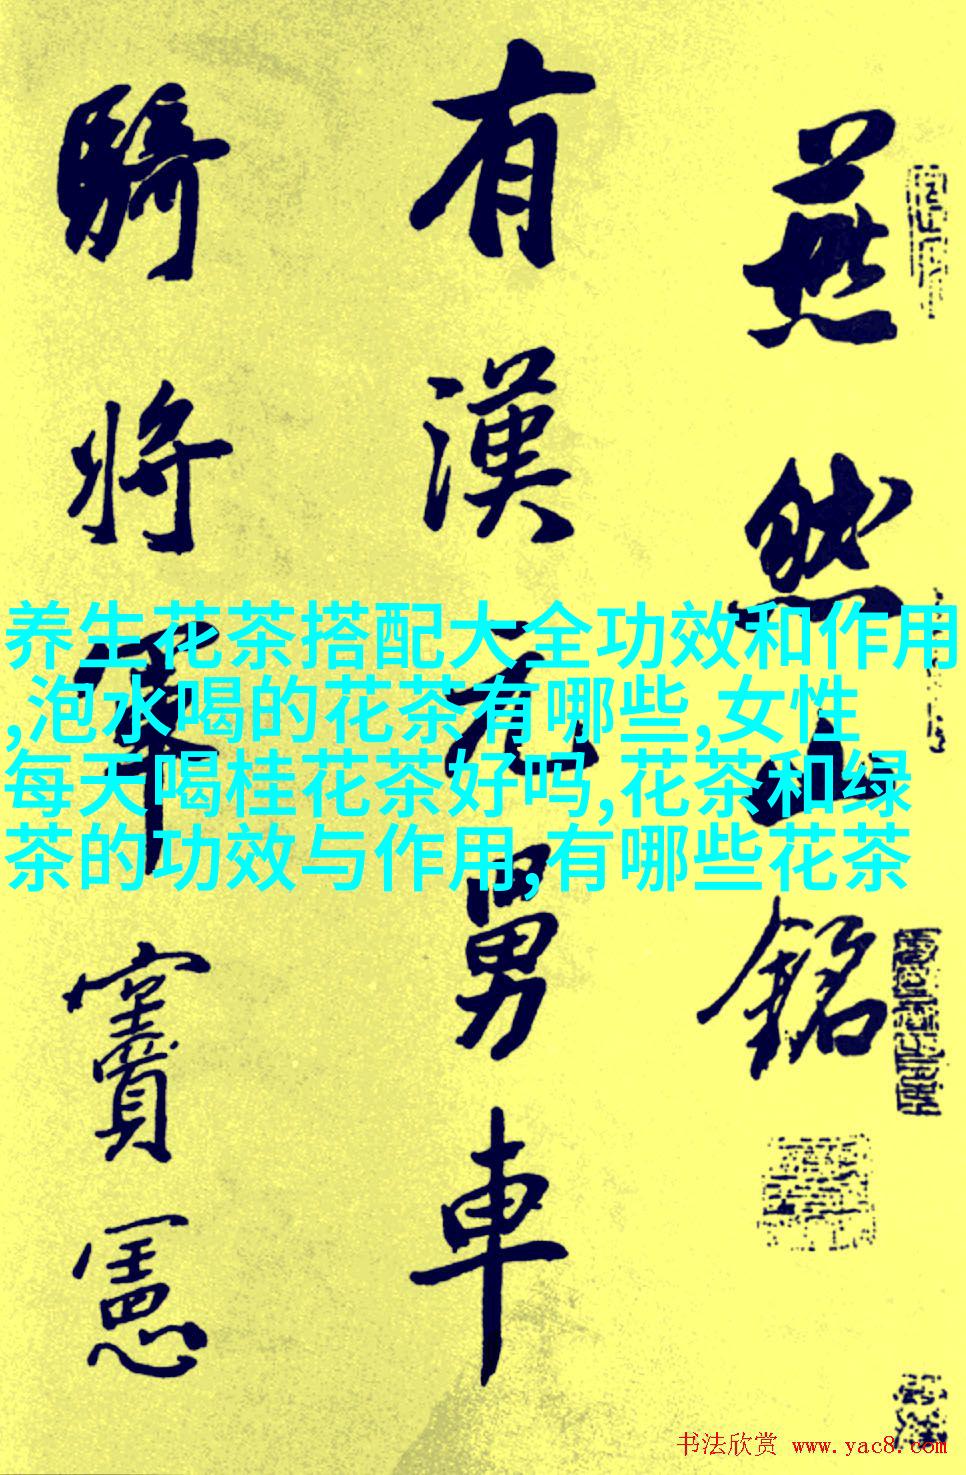 燕然山銘
有漢元舅車
騎將軍竇憲
养生花茶搭配大全功效和作用
,泡水喝的花茶有哪些,女性
每天喝桂花茶好吗,花茶和绿
茶的功效与作用,有哪些花茶
书法欣赏 www.yac8.com